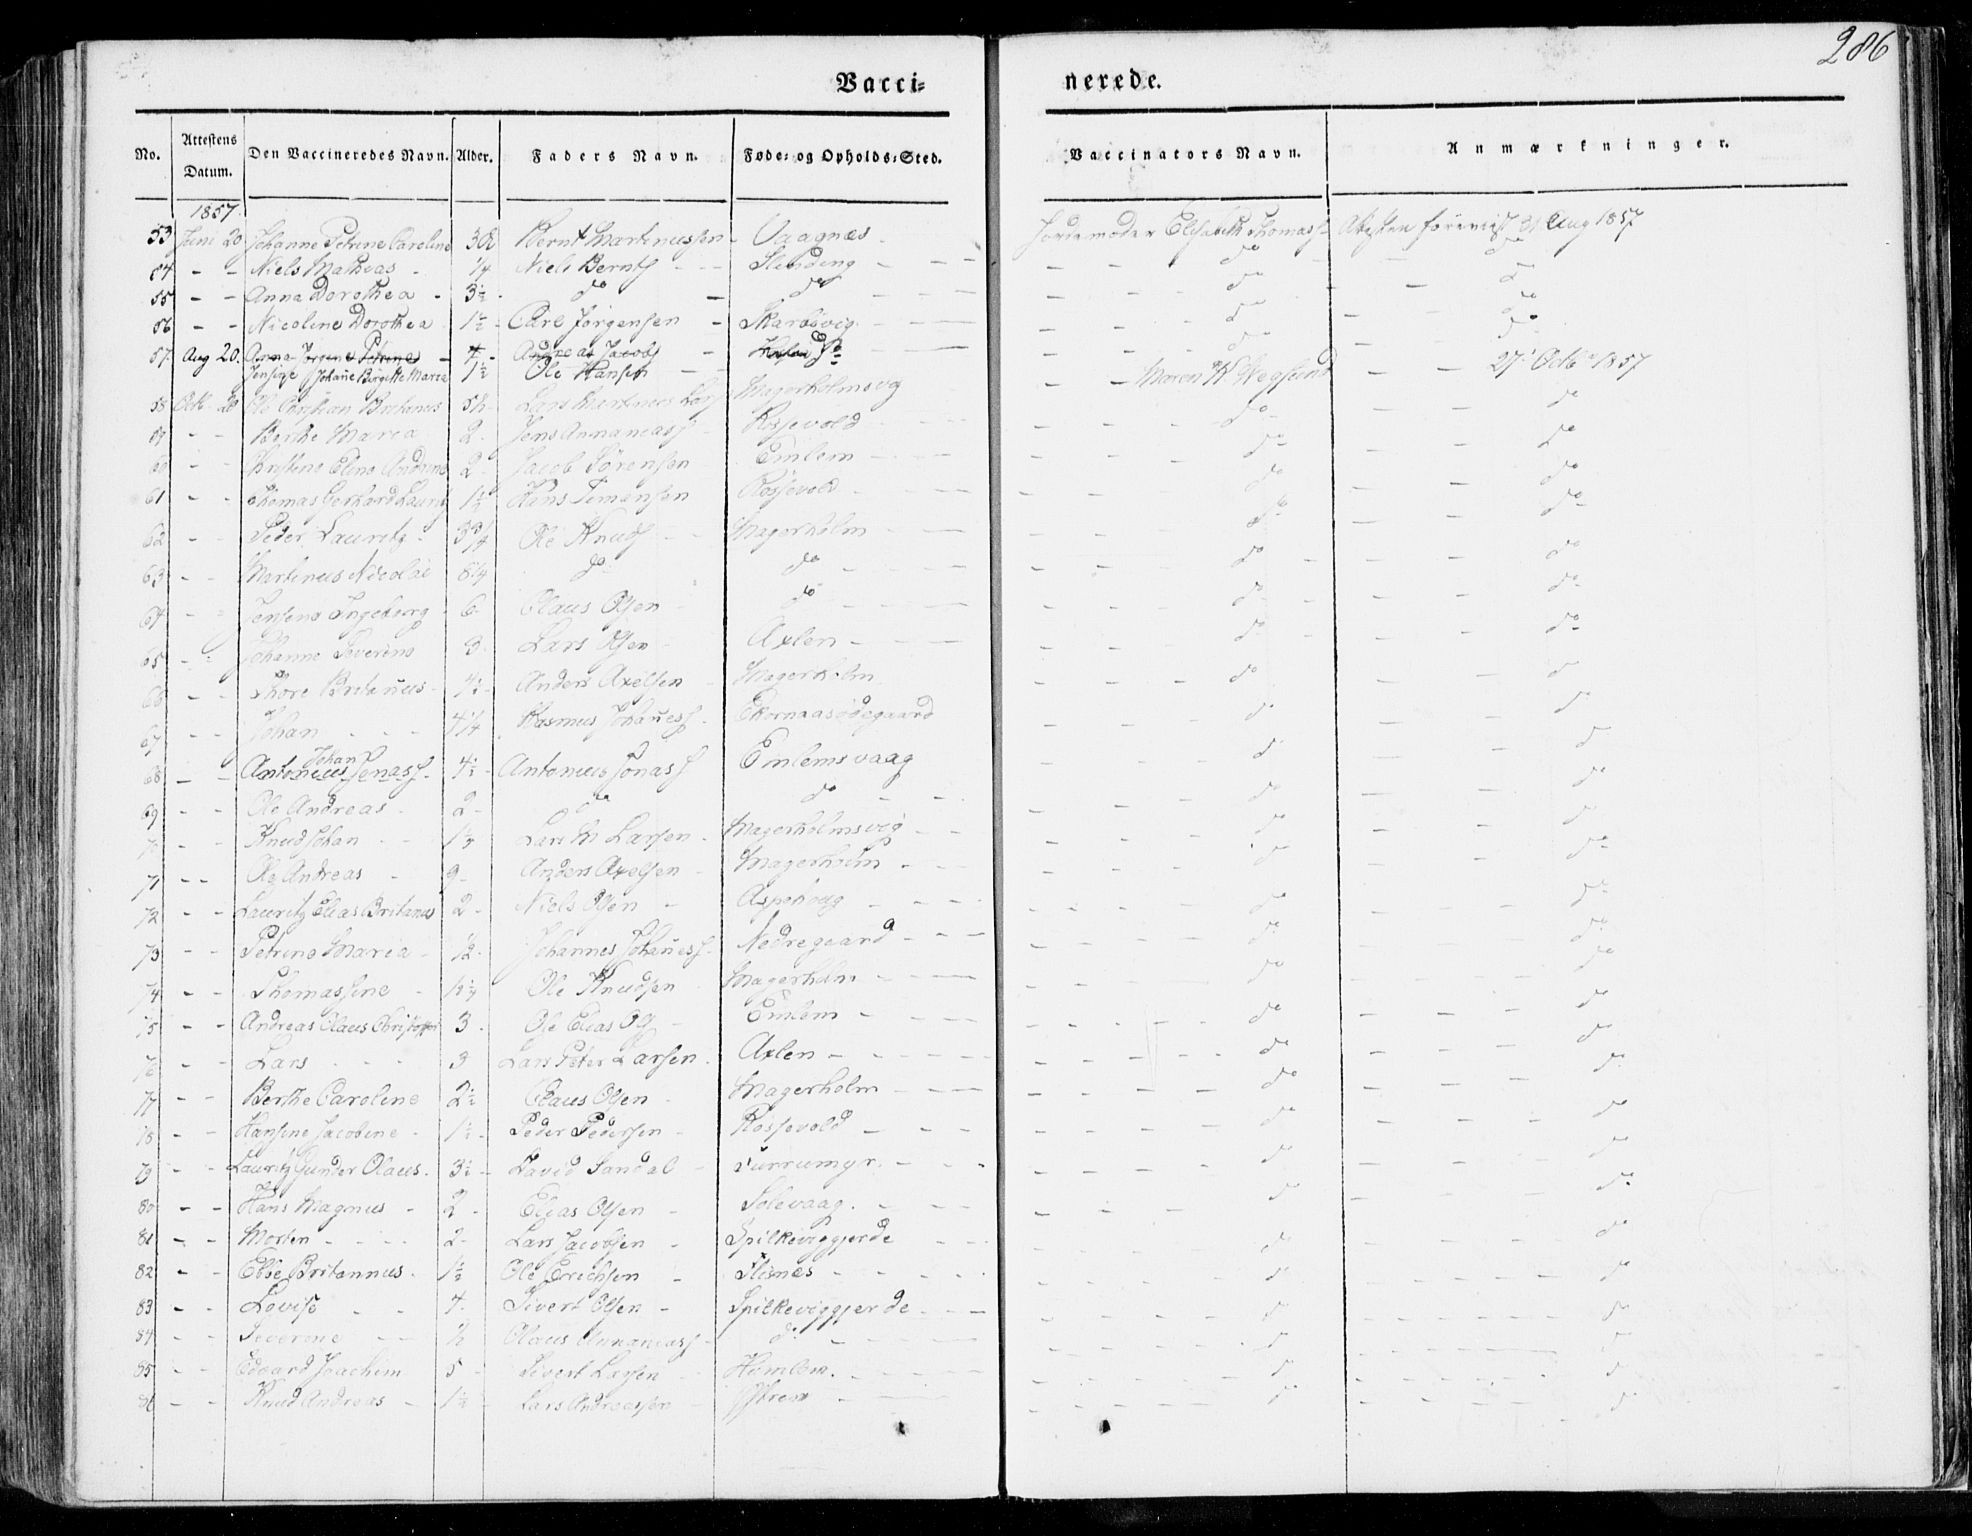 286
Vacci= nerede.
No. Attestens Datum. Den Vaccineredes Navn. Alder. Faders Navn. Føde= og Opholds=Sted. Vaccinators Navn. Anmærkninger.
1857.
53 Juni 20 Johanne Petrine Caroline Bernt Martinussen - Vaagnæs - Jordemoder Elisabeth Thomass Attesten foreviist 31 Aug 1857
54 - - Niels Mathias - 1/4 Niels Bernts - - - - - - do do
55 - - Anna Dorothea - 3½ - do - do - - - do do
56 - - Nicoline Dorothea 1½ - Carl Jørgensen - Skarbøvig - - - do do
57 Aug 20. Anna Jørgine Petrine - 4 - Andreas Jacobs - do do
Jensine Johañe Birgitte Maria 1½ Ole Hansen - - do
58 Octb. 20 Ole Christian Britanus Lars Martinus Lars Magerholmsvig - - Maren K. Wegsund - - 27 Octb 1857
59 - - Berthe Maria 2 - Jens Annanias Rossevold - - do do
60 - - Elene Andrine 2 - Jacob Sørensen Emlem - - do do
61 - - Thomas Gerhard Laurits 1½ Hans Rossevold - - do do
62 - - Peder Lauritz - 3 3/4 Ole Knuds - - Magerholm - - do do
63 - - Martinus Nicolai 6 1/4 do do - - do do
64 - - Jensine Ingeborg 6 - Olaus Olsen - do - - do do
65 - - Johanne Severine 3 - Lars Olsen - Axlen - - do do
66 - - Thore Britañus - 4½ - Anders Axelsen - Magerholm do do
67 - - Johan - - - 4 1/4 Rasmus Johañess - Ekornaasødegaard do do
68 - - Antonius Johan Jonass - 4½ - Antonius Jonas Emlemsvaag do do
69 - - Ole Andreas - 2 - do do - - do do
70 - - Knud Johan - - Lars M Larsen - Magerholmsvig - - do do
71 - - Ole Andreas - 9 - Anders Axelsen - Magerholm - - do do
72 - - Lauritz Elias Britanus 2 - Niels Olsen - Aspehoug - - - do do
73 - - Petrine Maria - 1/2 - Johannes Johañess - Nedregaard - - - do do
74 - - Thomassine - Ole Knudsen Magerholm - - do do
75 - - Andreas Olaus Christoffer 3 - Ole Elias Ols - Emlem - - - do do
76 - - Lars - - - 3 Lars Peter Larsen - Axlen - - - - do do
77 - - Berthe Caroline 2½ Olaus Olsen - Magerholm - - - do do
78 - - Hansine Jacobine - 1½ - Peder Pedersen - Rossevold - - - do do
79 - - Lauritz Gunder Olaus - 3½ - David Sandal - Furrumyr - - - do do
80 - - Hans Magnus - 2 - Elias Olsen - Solevaag. - - do do
81 - - Morten - - - 2 - Lars Jacobsen - Spilkeviggjerde - - do do
82 - - Ebbe Britannus - 1½ Ole Erichsen - Flisnes - - - - do do
83 - - Lovise - - 4 - Sivert Olsen - Spilkeviggjerde - - - do do
84 - - Severine - - 1/2 Olaus Annanias - do - - - do do
85 - - Edvard Joachim 5 - Sivert Larsen - - Humlem. - - - do do
86 - - Knud Andreas - 1½ - Lars Andreassen - - - do do